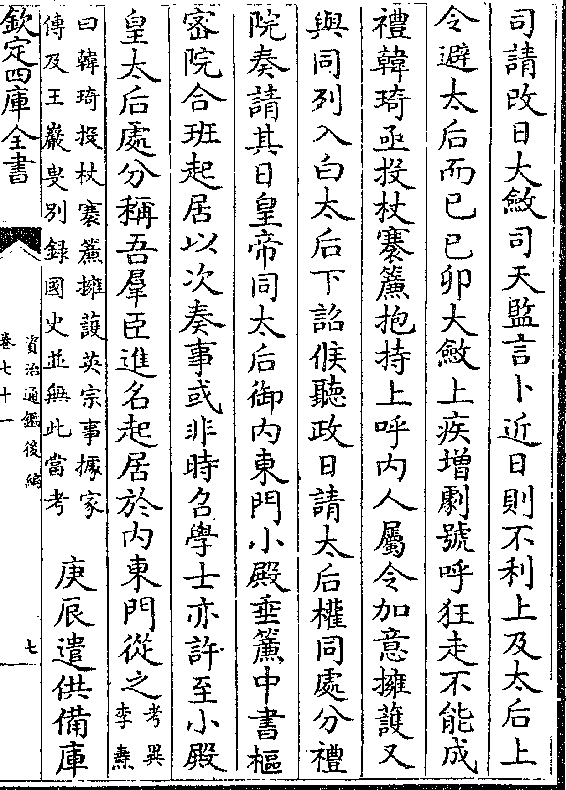 司請改日大斂司天監言卜近日則不利上及太后上
令避太后而已己卯大斂上疾增劇號呼狂走不能成
禮韓琦亟投杖褰簾抱持上呼内人屬令加意擁護又
與同列入白太后下詔候聽政日請太后權同處分禮
院奏請其日皇帝同太后御内東門小殿垂簾中書樞
宻院合班起居以次奏事或非時召學士亦許至小殿
皇太后處分稱吾羣臣進名起居於内東門從之考異
李燾
曰韓琦投杖褰簾擁護英宗事據家
傳及王巖叟別録國史並無此當考
庚辰遣供備庫
欽定四庫全書
資治通鑑後編
卷七十一
七